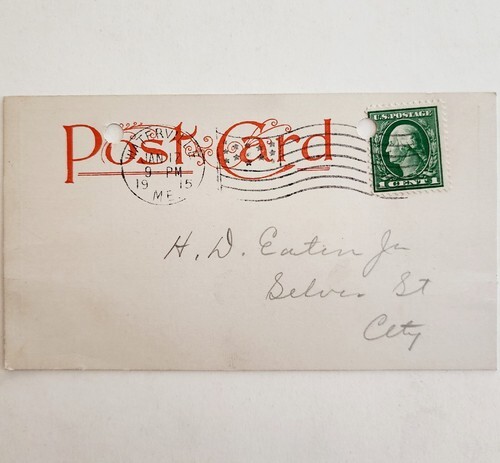 Post Card
WATERVILLE
JAN 17
9 PM
1915
ME.
U.S. POSTAGE
1 CENT 1
H. D. Eaton Jr
Silver St
City